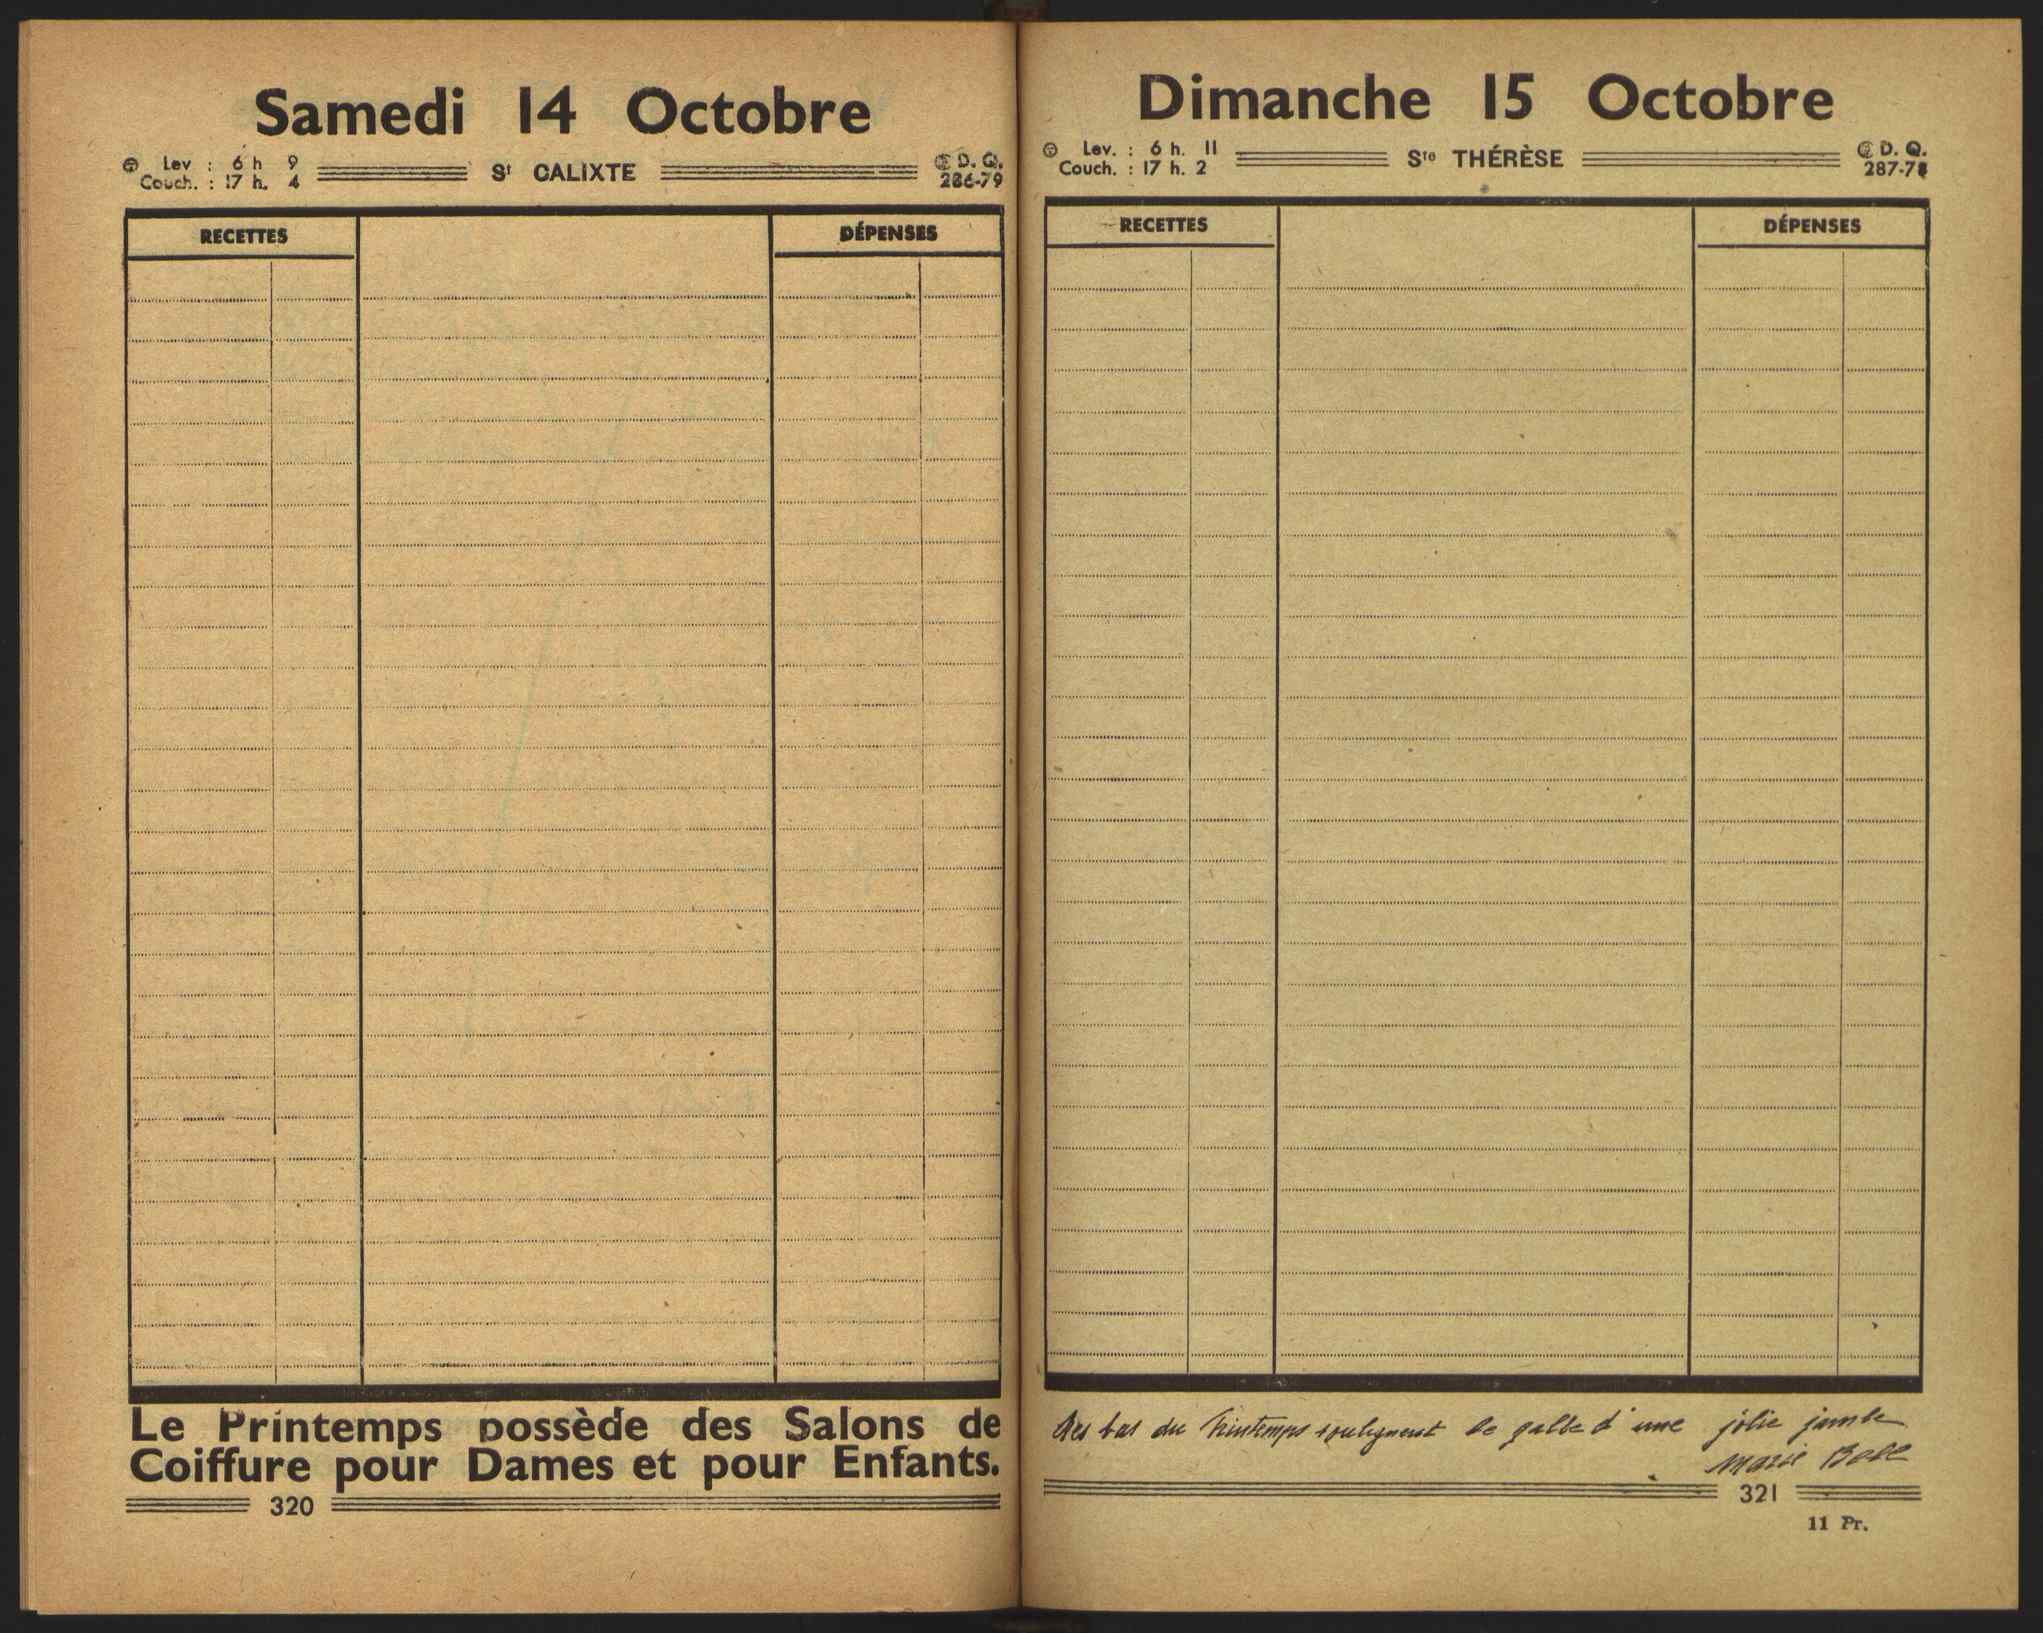 Samedi 14 Octobre
Lev : 6 h 9
Couch. : 17 h. 4
St CALIXTE
D. Q.
286-79
RECETTES
DÉPENSES
Le Printemps possède des Salons de
Coiffure pour Dames et pour Enfants.
320
Dimanche 15 Octobre
Lev. : 6 h. 11
Couch. : 17 h. 2
Ste THÉRÈSE
D. Q.
287-78
RECETTES
DÉPENSES
Les bas du Printemps soulignent le galbe d'une jolie jambe
Marie Bell
321
11 Pr.